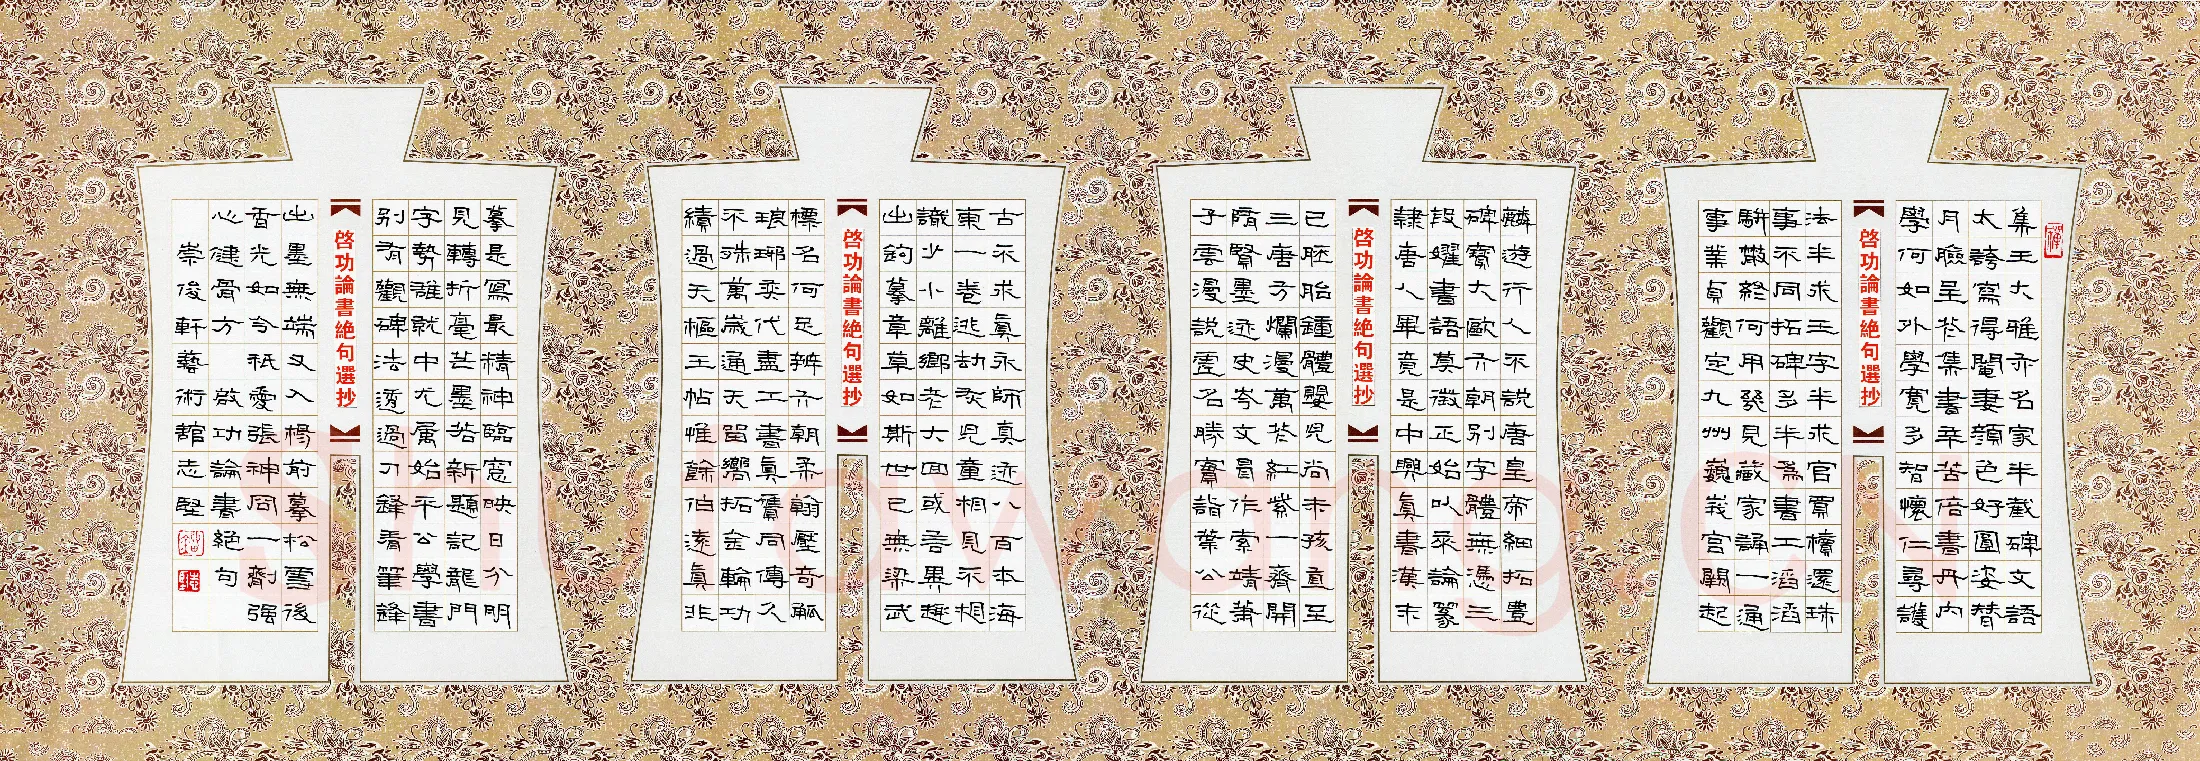 集王大雅亦名家半截碑文語
太誇寫得閻妻顏色好圓姿替
月臉呈花集書辛苦倍書丹内
學何如外學寬多智懷仁尋護
啓功論書絶句選抄
法半求王字半求官買櫝還珠
事不同拓碑多半為書工滔滔
駢散終何用幾見藏家誦一通
事業貞觀定九州巍峩宮闕起
麟遊行人不説唐皇帝細拓豊
碑寶大歐六朝別字體無憑三
段書語莫徵正始以来論篆
隸唐人畢竟是中興真書漢末
啓功論書絶句選抄
已胚胎鍾體嬰兒尚未孩直至
三唐方爛漫萬花紅紫一齊開
隋賢墨迹史岑文冒作索靖萧
子雲漫説虚名勝實詣葉公從
古不求真永師真迹八百本海
東一卷逃劫灰兒童相見不相
識少小離鄉老大回或吾異趣
出鉤摹章草如斯世已無梁武
啓功論書絶句選抄
標名何足辨六朝柔翰壓奇觚
琅琊奕代盡工書真贋同傳久
不殊萬歲通天留嚮拓金輪功
績過天樞王帖惟餘伯遠真非
摹是寫最精神臨窗映日分明
見轉折毫芒墨若新題記龍門
字勢雄就中尤属始平公學書
別有觀碑法透過刀鋒看筆鋒
啓功論書絶句選抄
出墨無端又入楊前摹松雪後
香光如今祇愛張神冏一劑强
心健骨方 啟功論書絕句
崇俊軒藝術館志堅